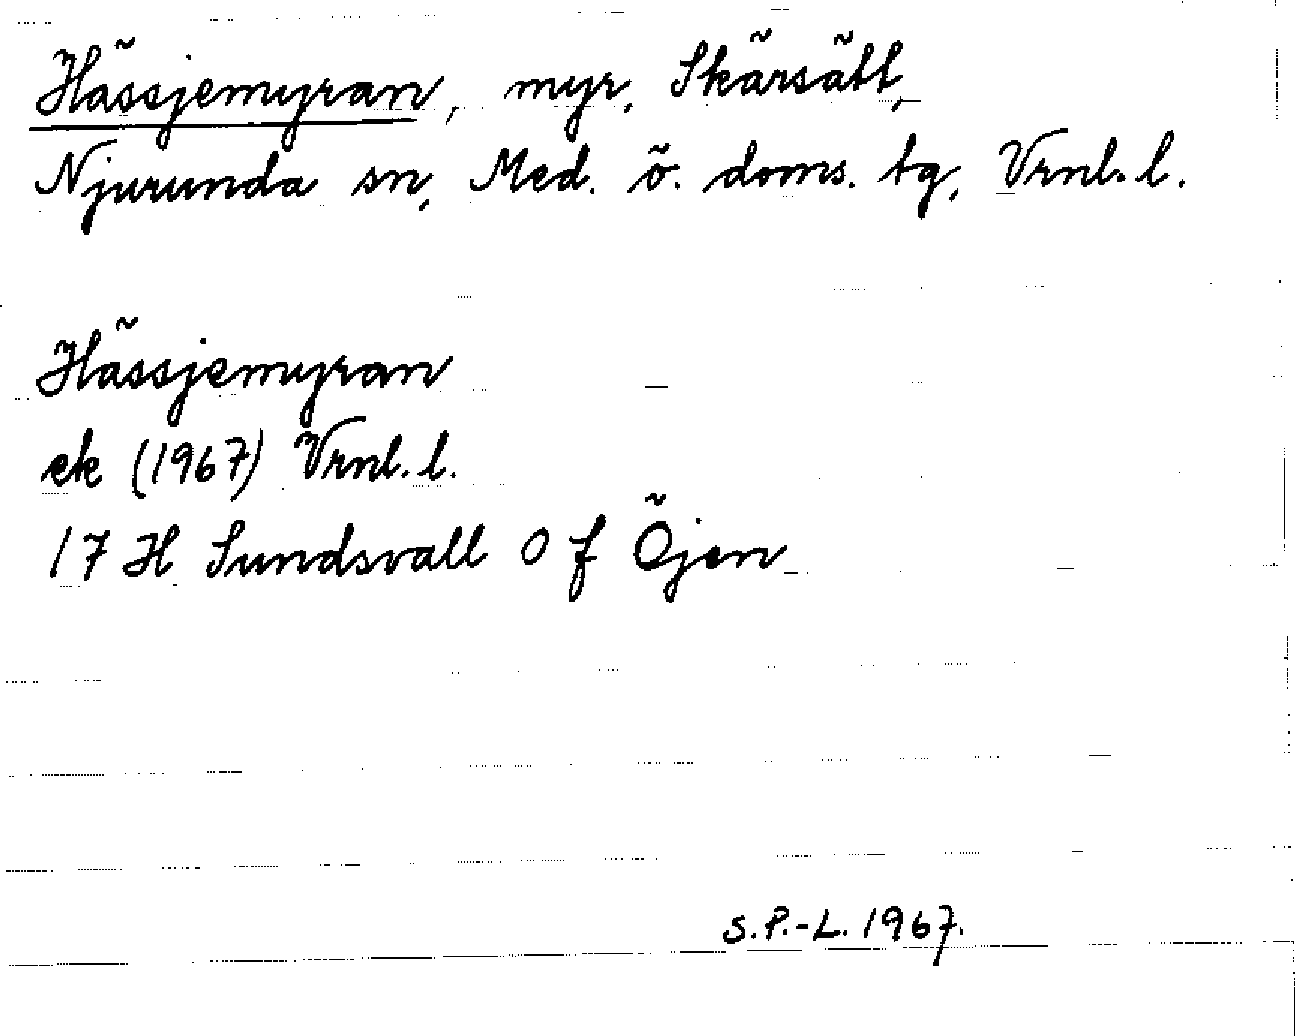 Hässjemyran, myr, Skärsätt,
Njurunda sn, Med. ö. doms. tg, Vrnl. l.
Hässjemyran
ek (1967) Vrnl. l.
17 H Sundsvall O f Öjen
S.P.-L. 1967.